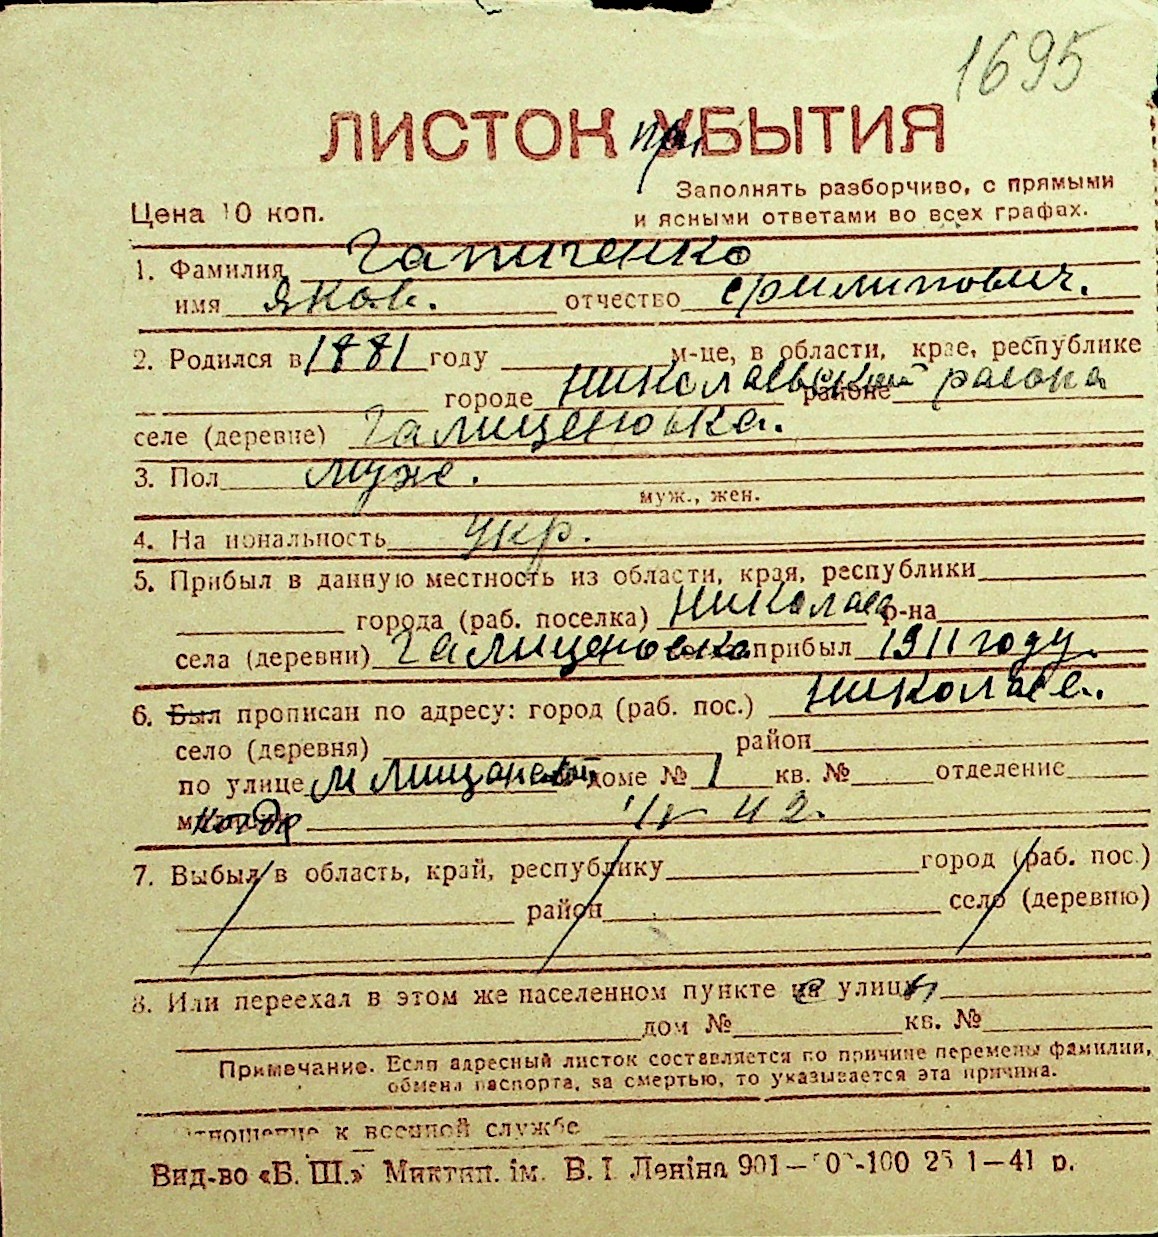 1695
ЛИСТОК приБЫТИЯ
Цена 10 коп.
Заполнять разборчиво, с прямыми
и ясными ответами во всех графах.
1. Фамилия Гапиченко
имя Яков. отчество Филипович.
2. Родился в 1881 году м-це, в области, крае, республике
городе Николаевский районе района
селе (деревне) Галициновка.
3. Пол муж.
муж., жен.
4. Национальность укр.
5. Прибыл в данную местность из области, края, республики
города (раб. поселка) Николаев р-на
села (деревни) Галициновка прибыл 1911 году
6. Был прописан по адресу: город (раб. пос.) Николаев.
село (деревня) район
по улице М доме № 1 кв. № отделение
42.
7. Выбыл в область, край, республику город (раб. пос.)
район село (деревню)
8. Или переехал в этом же населенном пункте с улицы
дом № кв. №
Примечание. Если адресный листок составляется по причине перемены фамилии,
обмена паспорта, за смертью, то указывается эта причина.
отношение к военной службе
Вид-во «Б. Ш.» Миктип. ім. В. І. Леніна 901 1—41 р.